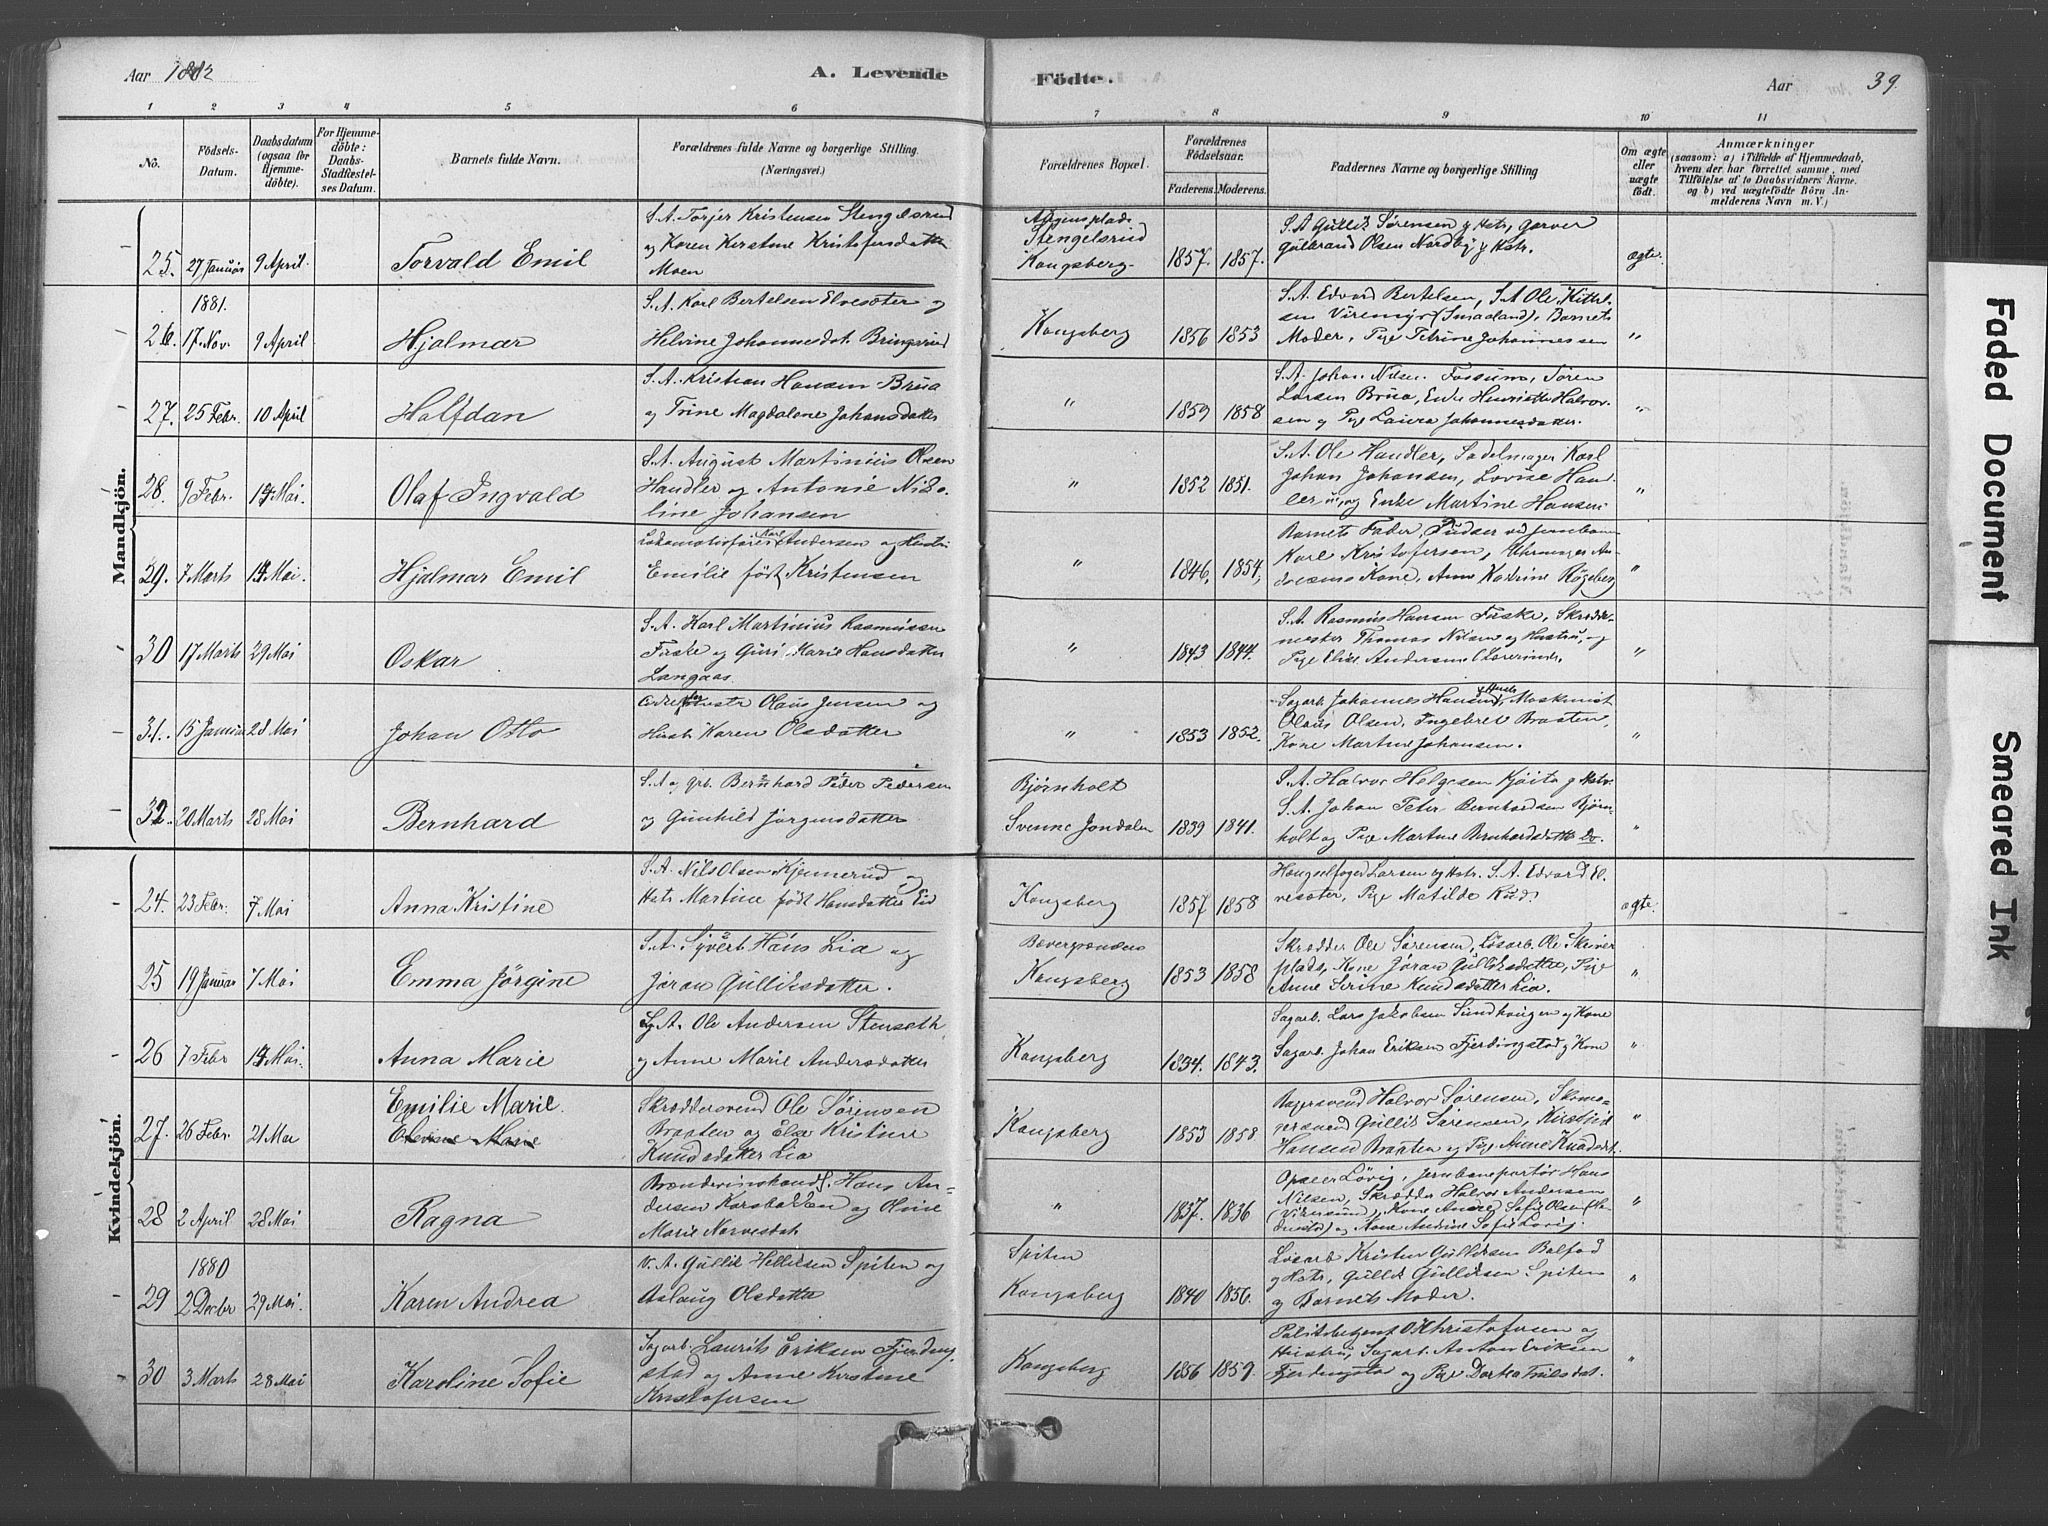 Aar 1882
A. Levende
Födte.
Aar
39.
1 2 3 4 5 6 7 8 9 10 11
No.
Födsels-
Datum.
Daabsdatum
(ogsaa for
Hjemme-
döbte).
For Hjemme-
döbte:
Daabs-
Stadfæstel-
ses Datum.
Barnets fulde Navn.
Forældrenes fulde Navne og borgerlige Stilling.
(Næringsvei.)
Forældrenes Bopæl.
Forældrenes
Födselsaar.
Faderens. Moderens.
Faddernes Navne og borgerlige Stilling
Om ægte
eller
uægte
födt.
Anmærkninger
(saasom: a) i Tilfælde af Hjemmedaab,
hvem der har forrettet samme, med
Tilföielse af to Daabsvidners Navne.
og b) ved uægtefödte Börn An-
melderens Navn m. V.)
Mandkjön.
25. 27 Januar 9 April.
Torvald Emil
S.A. Torjer Kristensen Stengelsrud
og Karen Kerstine Kristofersdatter
Moen
Stengelsrud
Kongsberg
1857. 1857.
S.A Gullik Sørensen g Hstr, Garver
Gulbrand Olsen Nordby g Hstr.
ægte.
1881.
26. 17 Nov. 9 April
Hjalmar
S.A. Karl Bertelsen Elvesæter og
Helvine Johannesdat. Bringsrud
Kongsberg
1856 1853
S.A. Edvard Bertelsen, S.A Ole Kittel-
sen Viremyr (Smaaland), Barnets
Moder, Pige Petrine Johannessen
"
27. 25 Febr. 10 April
Halfdan
S.A. Kristian Hansen Brua
og Trine Magdalene Johansdatter
"
1859 1858
S.A. Johan Nilsen Fossum, Søren
Larsen Brua, Enke Henriette Halvor-
sen og Pige Laura Johannesdatter.
"
28. 9 Febr. 14 Mai
Olaf Ingvald
S.A. August Martinius Olsen
Handler og Antonie Niko-
line Johansen
"
1852 1851.
S.A. Ole Handler, Sadelmager Karl
Johan Johansen, Lovise Hand-
ler og Enke Martine Hansen
"
29. 7 Marts 14 Mai.
Hjalmar Emil
Lokomotivfører Karl Andersen og Hustru
Emilie født Kristensen
"
1846. 1854,
Barnets Fader, Pudser ved Jernbanen
Karl Kristofersen, Uhrmager An-
dersens Kone, Anne Katrine Røgeberg
"
30 17 Marts 29 Mai
Oskar
S.A. Karl Martinius Rasmussen
Fiske og Guri Marie Hansdatter
Langaas.
"
1843 1844.
S.A. Rasmus Hansen Fiske, Skrædder-
mester Thomas Nilsen og Hustru, og
Pige Elise Andersen Lærerinde.
"
31. 15 Januar 28 Mai
Johan Otto
Olaus Jensen og
Hust. Karen Olsdatter
"
1853 1852.
Sagarb. Johannes Hansen g Hustr, Maskinist
Olaus Olsen, Ingebret Braaten,
Kone Martine Johansen.
"
32. 20 Marts 28 Mai
Bernhard
S.A og grb. Bernhard Peder Pedersen
og Gunhild Jørgensdatter
Bjørnholt
Svenne Jondalen
1839 1841.
S.A. Halvor Helgesen Kjøita g Hstr.
S.A. Johan Peter Bernhardsen Bjørn-
holt og Pige Martine Bernhardsdatter Do.
"
Kvindekjön.
24. 23 Febr. 7 Mai
Anna Kristine
S.A. Nils Olsen Kjennerud og
Hstr Martine født Hansdatter Eid
Kongsberg
1857 1858
Hengselfoged Larsen og Hstr. S.A. Edvard El-
vesæter, Pige Matilde Rud.
ægte.
25 19 Januar 7 Mai
Emma Jörgine
S.A. Syvert Hans Lia og
Jøran Gulliksdatter.
Kongsberg
1853 1858
Skrædder Ole Sørensen, Løsarb. Ole Skriver
plads, Kone Jøran Gulliksdatter, Pige
Anne Serine Knudsdatter Lia.
"
26 7 Febr 14 Mai.
Anna Marie
Sg.A. Ole Andersen Stenseth
og Anne Marie Andersdatter
Kongsberg
1834. 1843.
Sagarb. Lars Jakobsen Sundhaugen og Kone
Sagarb. Johan Eriksen Fjerdingstad g Kone
"
27. 26 Febr. 21 Mai
Emilie Marie.
Olevine Marie
Skræddersvend Ole Sørensen
Braaten og Else Kristine
Knudsdatter Lia
Kongsberg
1853 1858
Bagersvend Halvor Sørensen, Skoma-
gersvend Gullik Sørensen,
Hansen Braaten og Pige Anne Knudsdat.
"
28 2 April 28 Mai
Ragna
Hans An-
dersen Korsbakken og Oline
Marie Narvesdat.
"
1837. 1836
Løvig, Jernbaneportør Hans
Nilsen, Skrædder Halvor Andersen
Kone Andrea Sofie Olsen
og Kone Andrine Sofie Løvig.
"
1880
29 2 Decbr 29 Mai
Karen Andrea
V.A. Gullik Helliksen Spiten og
Aslaug Olsdatter
Spiten
Kongsberg
1840 1856.
Løsarb Kristen Gulliksen Balfod
g Hstr, Gullik Gulliksen Spiten
og Barnets Moder.
"
30 3 Marts 28 Mai
Karoline Sofie
Sagarb. Laurits Eriksen Fjerding-
stad og Anne Kristine
Kristofersen
Kongsberg
1856 1859.
Politibetjent Christofersen og
Hustru, Sagarb. Anton Eriksen
Fjerdingstad og Pige Dortea Truls dat.
"
Faded Document
Smeared Ink